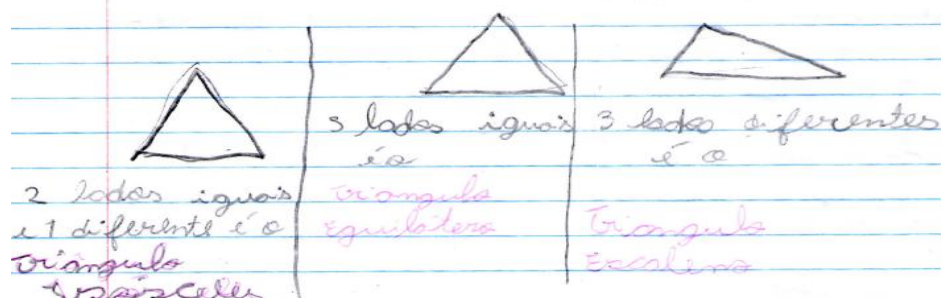 2 lados iguais
e 1 diferente é o
triângulo
isósceles
3 lados iguais
é o
triangulo
equilátero
3 lados diferentes
é o
Triangulo
Escaleno